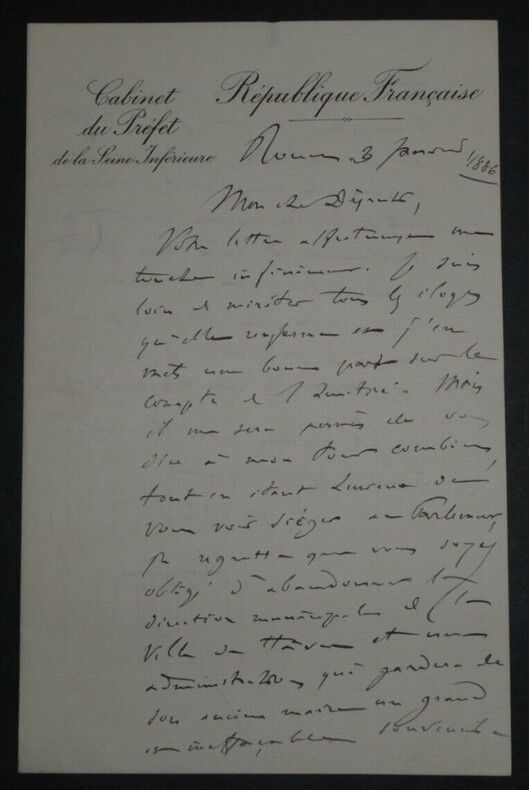 Cabinet
du Préfet
de la Seine-Inférieure
République Française
Rouen 3 Janvier 1886
Mon cher Député,
Votre lettre affectueuse me
touche infiniment. Je suis
loin de mériter tous les éloges
qu'elle renferme et j'en
mets une bonne part sur le
compte de l'amitié. Mais
il me sera permis de vous
dire à mon tour combien,
tout en étant heureux de
vous voir siéger au Parlement,
je regrette que vous soyez
obligé d'abandonner la
direction municipale de la
Ville du Havre et une
administration qui gardera de
son ancien maire un grand
et ineffaçable souvenir